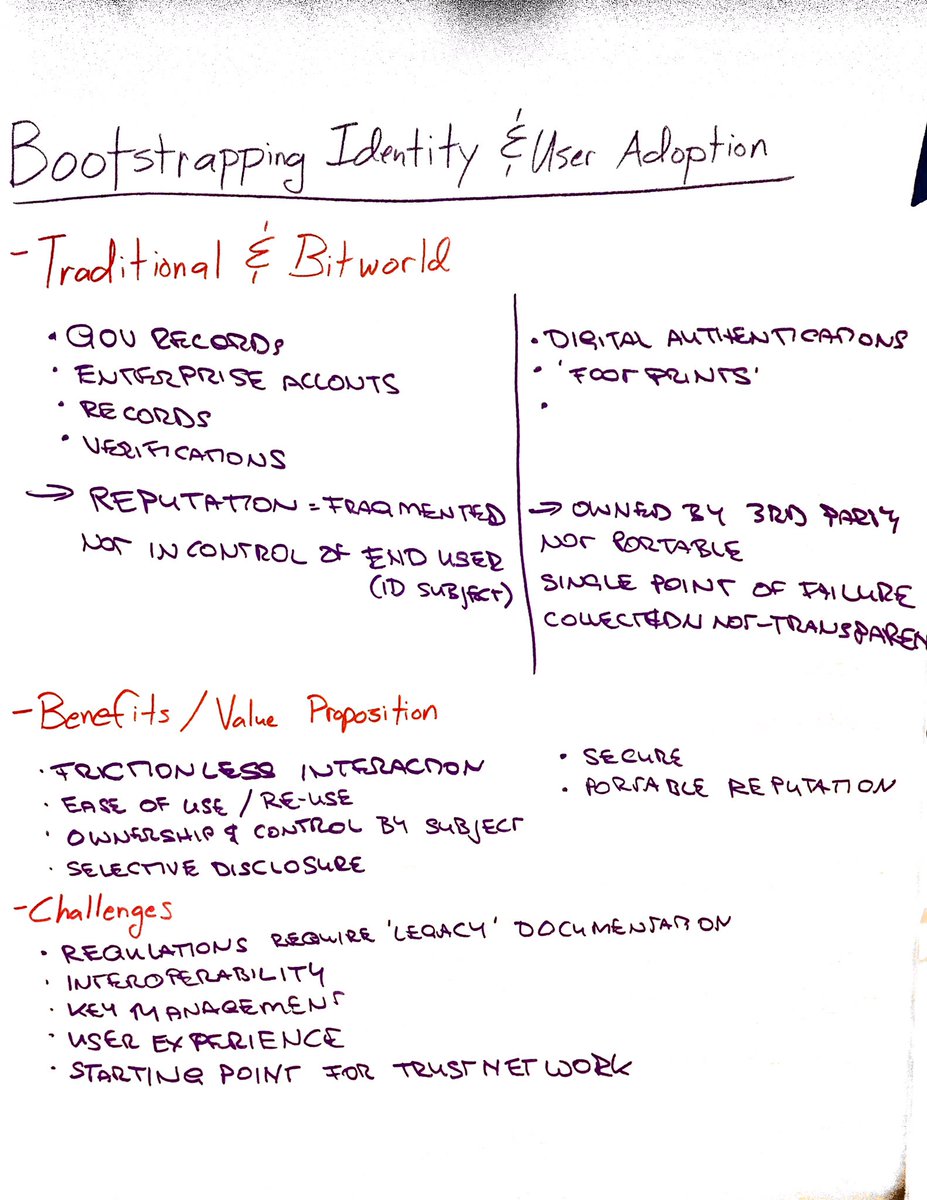 Bootstrapping Identity & User Adoption
- Traditional & Bitworld
• GOV RECORDS
• ENTERPRISE ACCONTS
• RECORDS
• VERIFICATIONS
→ REPUTATION = FRAGMENTED
NOT IN CONTROL OF END USER
(ID SUBJECT)
• DIGITAL AUTHENTICATIONS
• 'FOOT PRINTS'
•
→ OWNED BY 3RD PARTY
NOT PORTABLE
SINGLE POINT OF FAILURE
COLLECTION NOT-TRANSPAREN
- Benefits / Value Proposition
• FRICTIONLESS INTERACTION
• EASE OF USE / RE-USE
• OWNERSHIP & CONTROL BY SUBJECT
• SELECTIVE DISCLOSURE
• SECURE
• PORTABLE REPUTATION
- Challenges
• REGULATIONS REQUIRE 'LEGACY' DOCUMENTATION
• INTEROPERABILITY
• KEY MANAGEMENT
• USER EXPERIENCE
• STARTING POINT FOR TRUST NETWORK